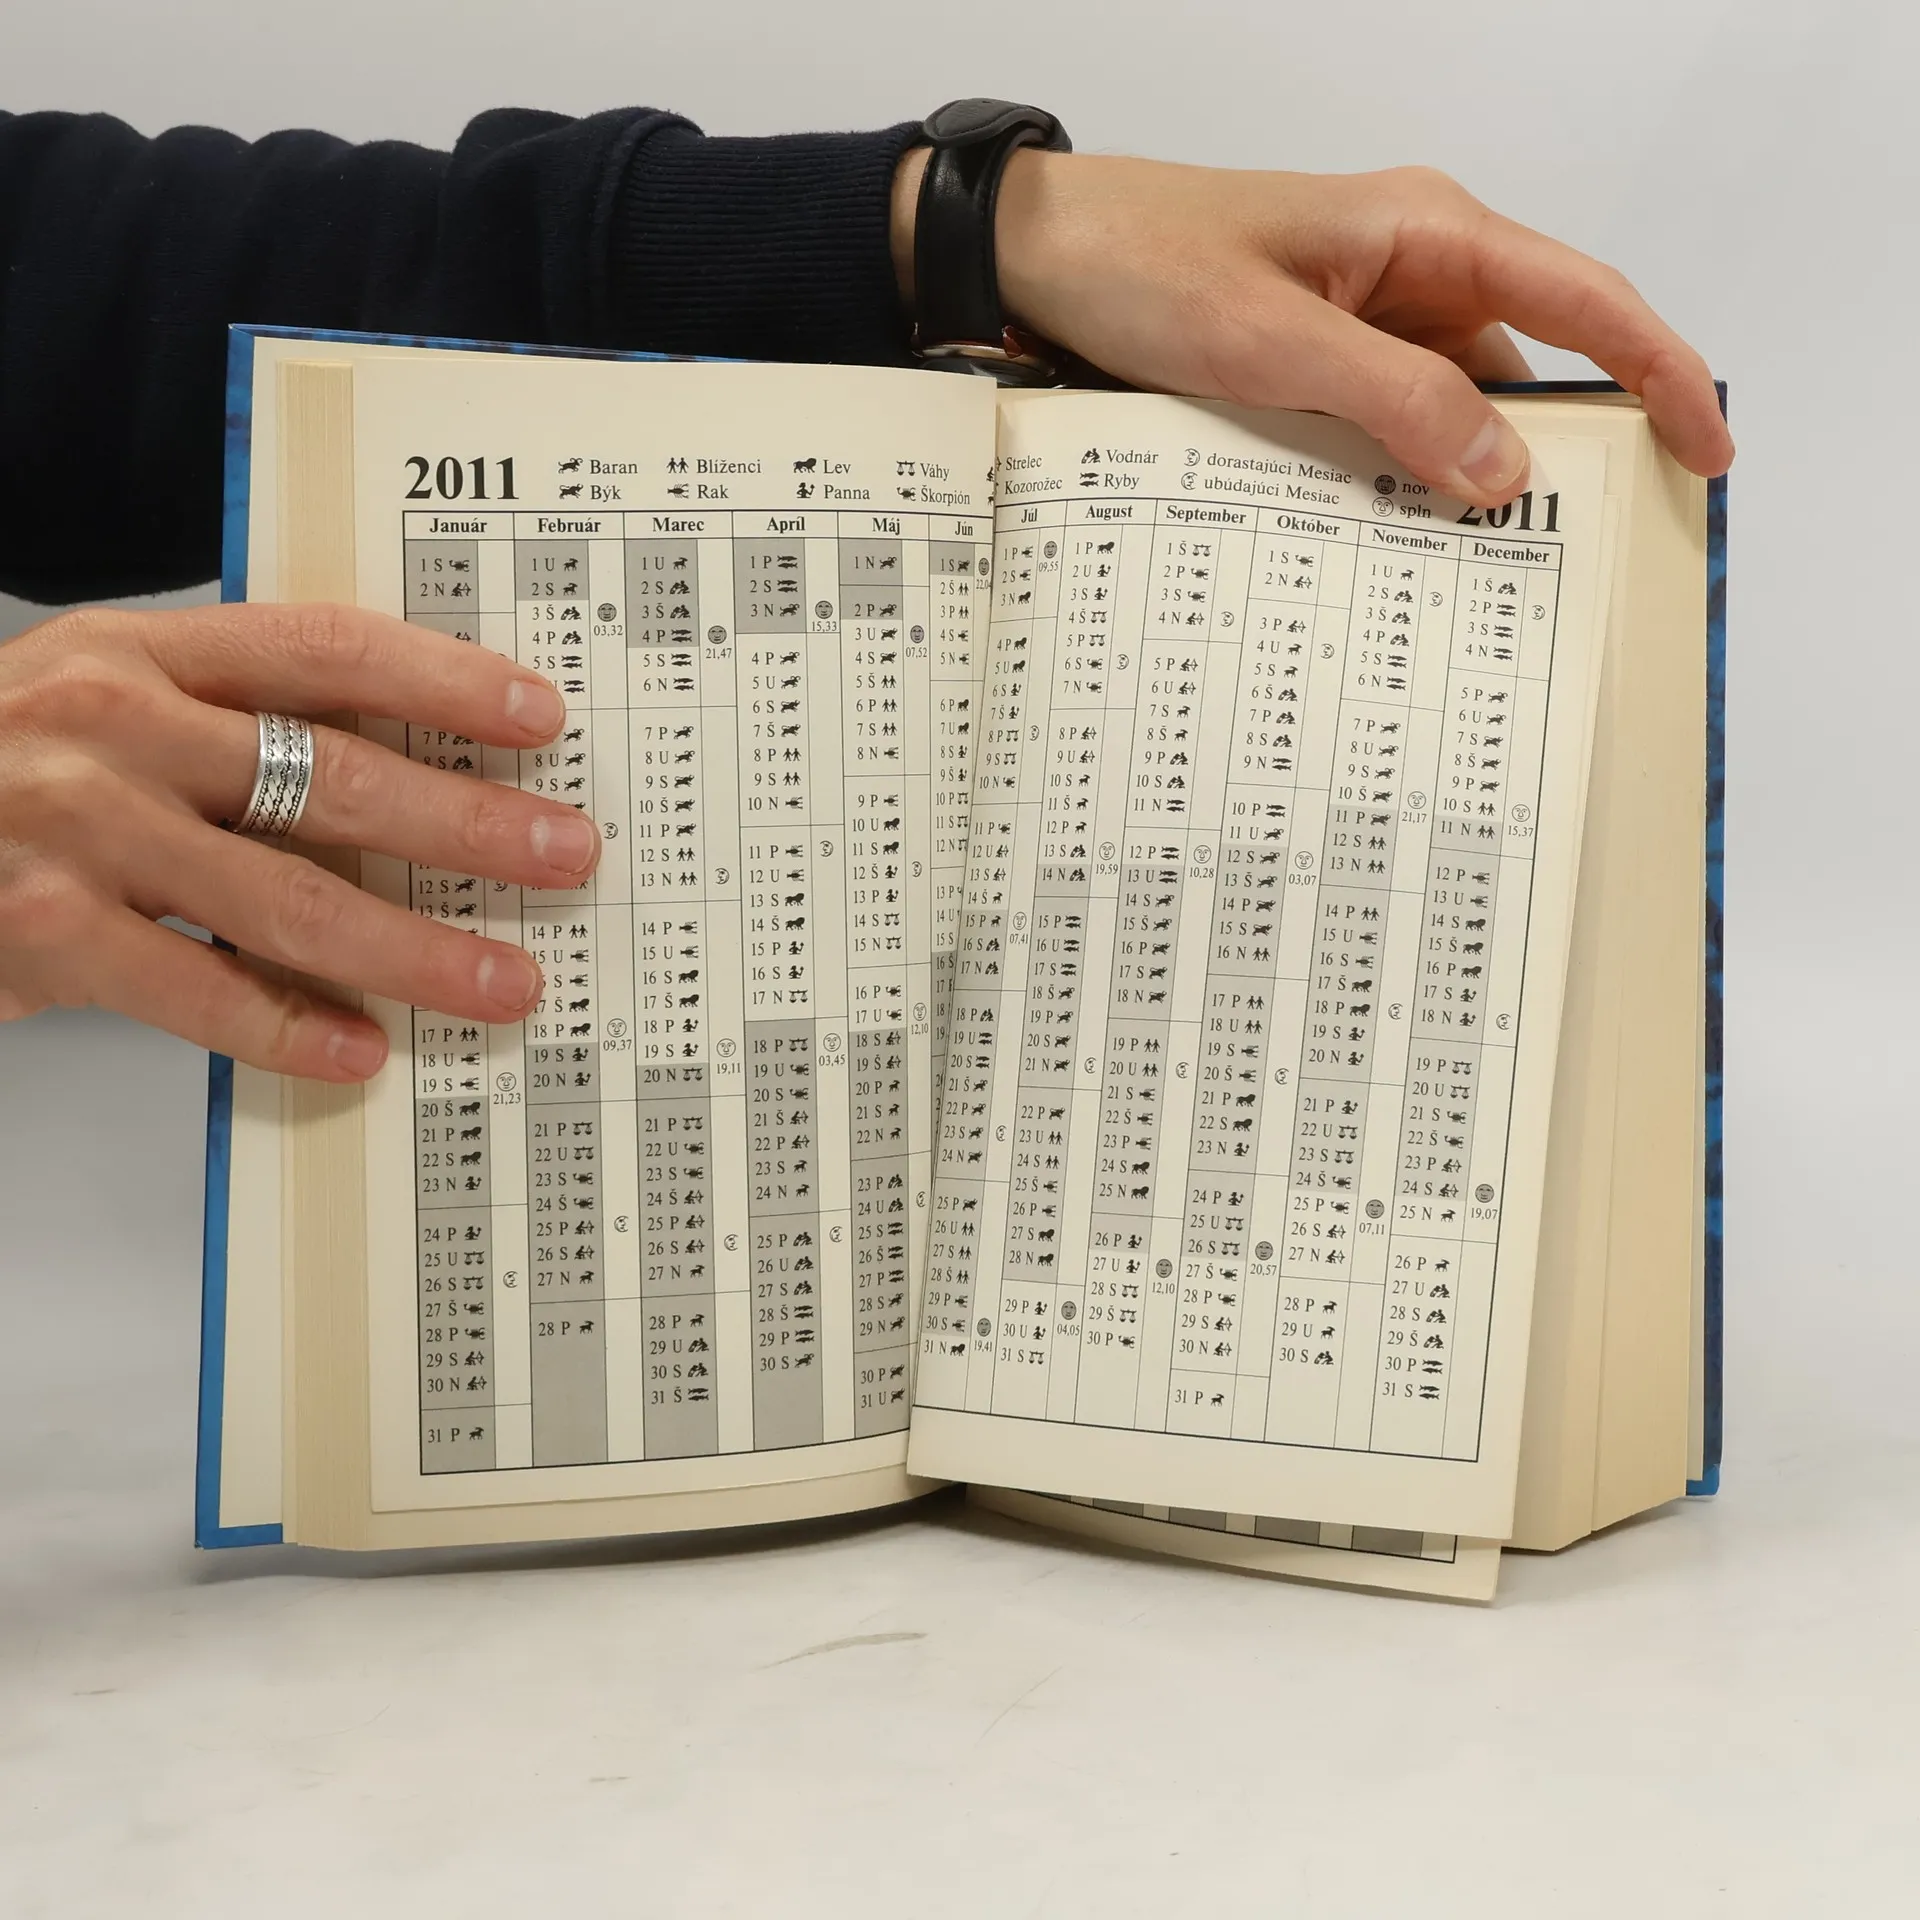 2011
Baran Blíženci Lev Váhy
Býk Rak Panna Škorpión
Strelec Vodnár dorastajúci Mesiac nov
Kozorožec Ryby ubúdajúci Mesiac spln
2011
Január
1 S
2 N
7 P
8 S
12 S
13 Š
17 P
18 U
19 S
21,23
20 Š
21 P
22 S
23 N
24 P
25 U
26 S
27 Š
28 P
29 S
30 N
31 P
Február
1 U
2 S
3 Š
03,32
4 P
5 S
8 U
9 S
14 P
15 U
S
17 Š
18 P
09,37
19 S
20 N
21 P
22 U
23 S
24 Š
25 P
26 S
27 N
28 P
Marec
1 U
2 S
3 Š
4 P
21,47
5 S
6 N
7 P
8 U
9 S
10 Š
11 P
12 S
13 N
14 P
15 U
16 S
17 Š
18 P
19 S
19,11
20 N
21 P
22 U
23 S
24 Š
25 P
26 S
27 N
28 P
29 U
30 S
31 Š
Apríl
1 P
2 S
3 N
15,33
4 P
5 U
6 S
7 Š
8 P
9 S
10 N
11 P
12 U
13 S
14 Š
15 P
16 S
17 N
18 P
03,45
19 U
20 S
21 Š
22 P
23 S
24 N
25 P
26 U
27 S
28 Š
29 P
30 S
Máj
1 N
2 P
3 U
07,52
4 S
5 Š
6 P
7 S
8 N
9 P
10 U
11 S
12 Š
13 P
14 S
15 N
16 P
17 U
12,10
18 S
19 Š
20 P
21 S
22 N
23 P
24 U
25 S
26 Š
27 P
28 S
29 N
30 P
31 U
Jún
1 S
2 Š
3 P
4 S
5 N
6 P
7 U
8 S
9 Š
10 P
11 S
12 N
13 P
14 U
15 S
16 Š
17
18
19
Júl
1 P
09,55
2 S
3 N
4 P
5 U
6 S
7 Š
8 P
9 S
10 N
11 P
12 U
13 S
14 Š
15 P
07,41
16 S
17 N
18 P
19 U
20 S
21 Š
22 P
23 S
24 N
25 P
26 U
27 S
28 Š
29 P
30 S
19,41
31 N
August
1 P
2 U
3 S
4 Š
5 P
6 S
7 N
8 P
9 U
10 S
11 Š
12 P
13 S
19,59
14 N
15 P
16 U
17 S
18 Š
19 P
20 S
21 N
22 P
23 U
24 S
25 Š
26 P
27 S
28 N
29 P
04,05
30 U
31 S
September
1 Š
2 P
3 S
4 N
5 P
6 U
7 S
8 Š
9 P
10 S
11 N
12 P
10,28
13 U
14 S
15 Š
16 P
17 S
18 N
19 P
20 U
21 S
22 Š
23 P
24 S
25 N
26 P
27 U
12,10
28 S
29 Š
30 P
Október
1 S
2 N
3 P
4 U
5 S
6 Š
7 P
8 S
9 N
10 P
11 U
12 S
03,07
13 Š
14 P
15 S
16 N
17 P
18 U
19 S
20 Š
21 P
22 S
23 N
24 P
25 U
26 S
20,57
27 Š
28 P
29 S
30 N
31 P
November
1 U
2 S
3 Š
4 P
5 S
6 N
7 P
8 U
9 S
10 Š
21,17
11 P
12 S
13 N
14 P
15 U
16 S
17 Š
18 P
19 S
20 N
21 P
22 U
23 S
24 Š
25 P
07,11
26 S
27 N
28 P
29 U
30 S
December
1 Š
2 P
3 S
4 N
5 P
6 U
7 S
8 Š
9 P
10 S
15,37
11 N
12 P
13 U
14 S
15 Š
16 P
17 S
18 N
19 P
20 U
21 S
22 Š
23 P
24 S
19,07
25 N
26 P
27 U
28 S
29 Š
30 P
31 S